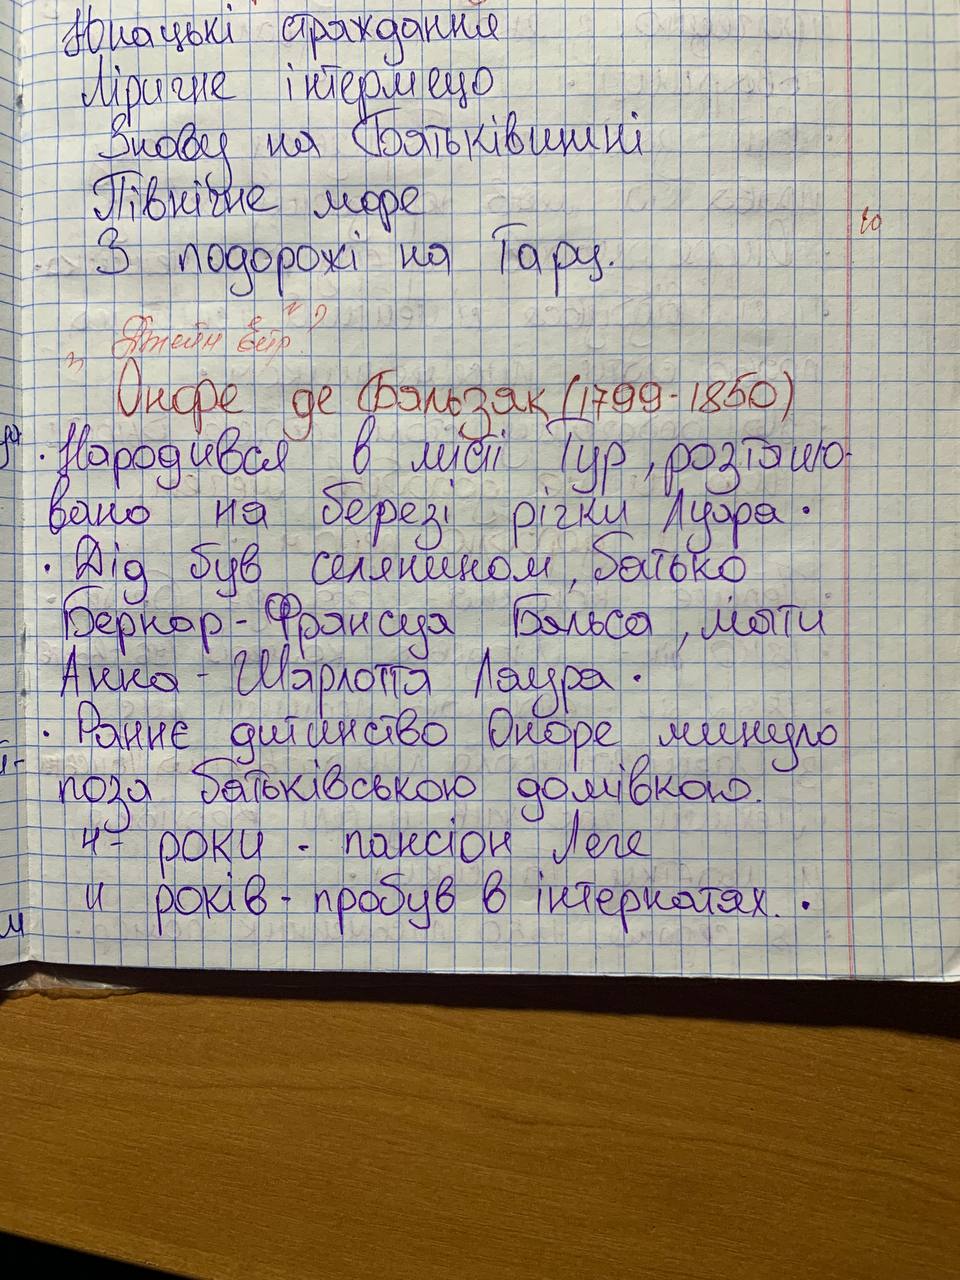 Юнацькі страждання
Ліричне інтермецо
Знову на Батьківщині
Північне море
З подорожі на Гарц.
10
"Джейн Ейр"?
Оноре де Бальзак (1799-1850)
· Народився в місті Тур, розташо-
вано на березі річки Луара.
· Дід був селянином, батько
Бернар-Франсуа Бальса, мати
Анна-Шарлотта Лаура.
· Раннє дитинство Оноре минуло
поза батьківською домівкою.
4- роки - пансіон Леге
4 років - пробув в інтернатах.